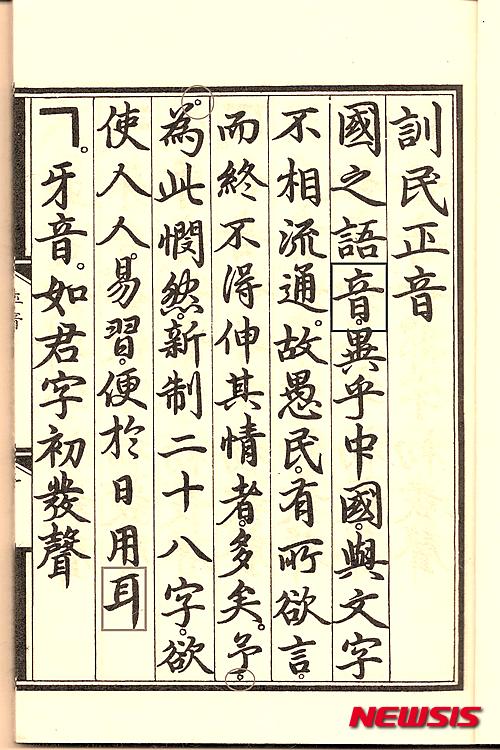 訓民正音
國之語音。異乎中國。與文字
不相流通。故愚民。有所欲言。
而終不得伸其情者。多矣。予。
為此憫然。新制二十八字。欲
使人人。易習。便於日用耳
ㄱ。牙音。如君字初發聲
NEWSIS